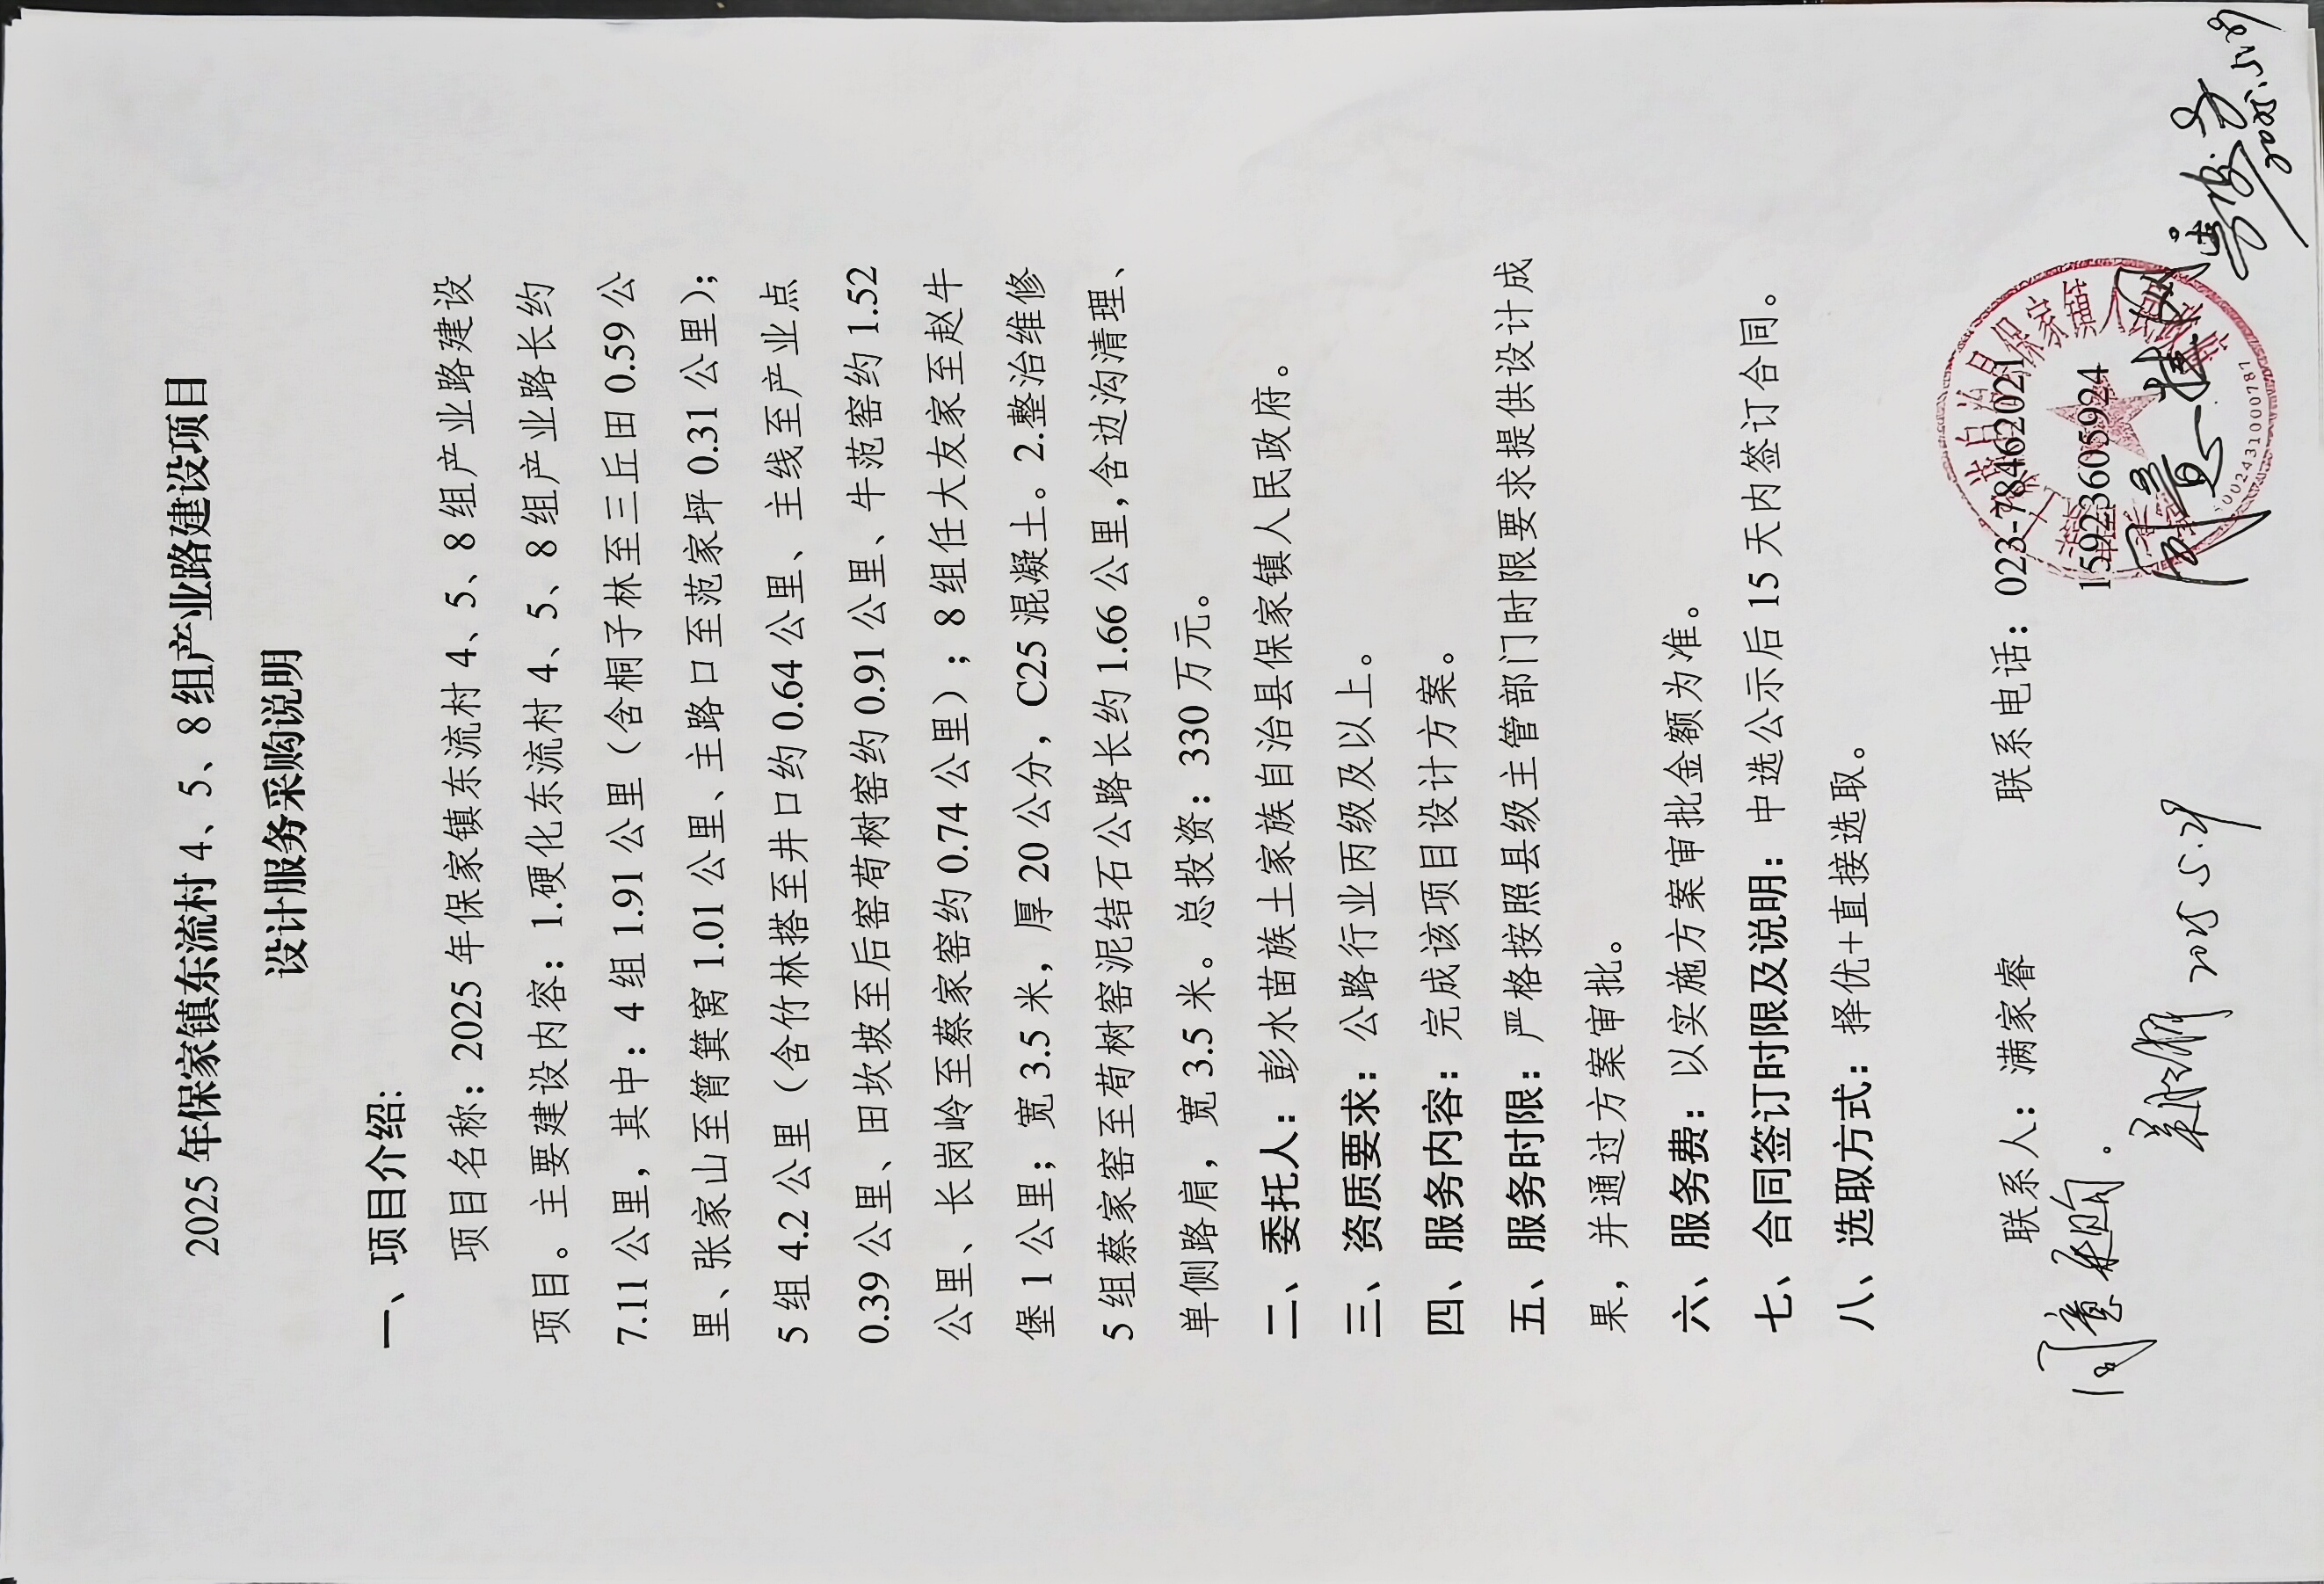 2025 年保家镇东流村 4、5、8 组产业路建设项目
设计服务采购说明
一、项目介绍:
项目名称：2025 年保家镇东流村 4、5、8 组产业路建设
项目。主要建设内容：1.硬化东流村 4、5、8 组产业路长约
7.11 公里，其中：4 组 1.91 公里（含桐子林至三丘田 0.59 公
里、张家山至筲箕窝 1.01 公里、主路口至范家坪 0.31 公里）；
5 组 4.2 公里（含竹林搭至井口约 0.64 公里、主线至产业点
0.39 公里、田坎坡至后窑荀树窑约 0.91 公里、牛范窑约 1.52
公里、长岗岭至蔡家窑约 0.74 公里）；8 组任大友家至赵牛
堡 1 公里；宽 3.5 米，厚 20 公分，C25 混凝土。2.整治维修
5 组蔡家窑至荀树窑泥结石公路长约 1.66 公里，含边沟清理、
单侧路肩，宽 3.5 米。总投资：330 万元。
二、委托人：彭水苗族土家族自治县保家镇人民政府。
三、资质要求：公路行业丙级及以上。
四、服务内容：完成该项目设计方案。
五、服务时限：严格按照县级主管部门时限要求提供设计成
果，并通过方案审批。
六、服务费：以实施方案审批金额为准。
七、合同签订时限及说明：中选公示后 15 天内签订合同。
八、选取方式：择优+直接选取。
联系人：满家睿 联系电话：023-78462021
15923605924
5002431000787
同意
2025.5.29
同意
2025.5.29